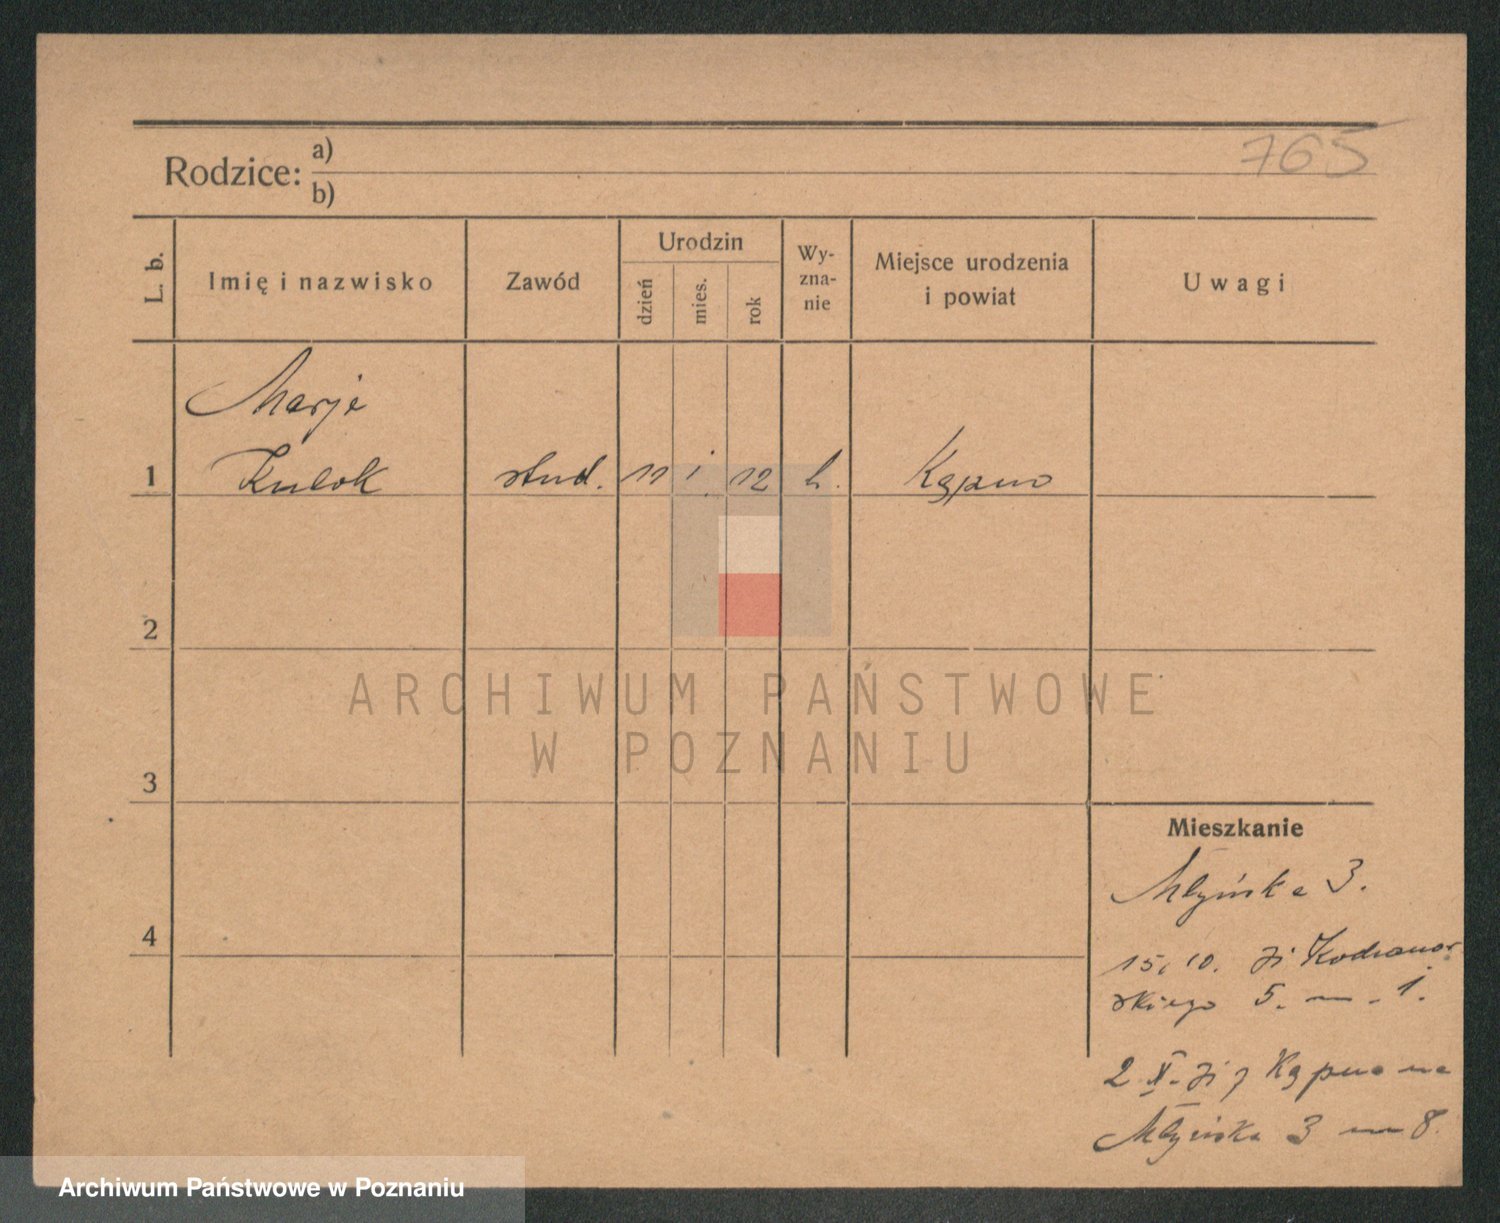 765
Rodzice: a)
b)
L. b. Imię i nazwisko Zawód Urodzin dzień mies. rok Wy-zna-nie Miejsce urodzenia i powiat Uwagi
Marja
1 Kulok stud. 11 i. 12 k. Kępno
2
ARCHIWUM PAŃSTWOWE
W POZNANIU
3
Mieszkanie
Młyńska 3.
4
15. 10.
skiego 5. m. 1.
2 X. Kępna na
Młyńska 3 m 8.
Archiwum Państwowe w Poznaniu